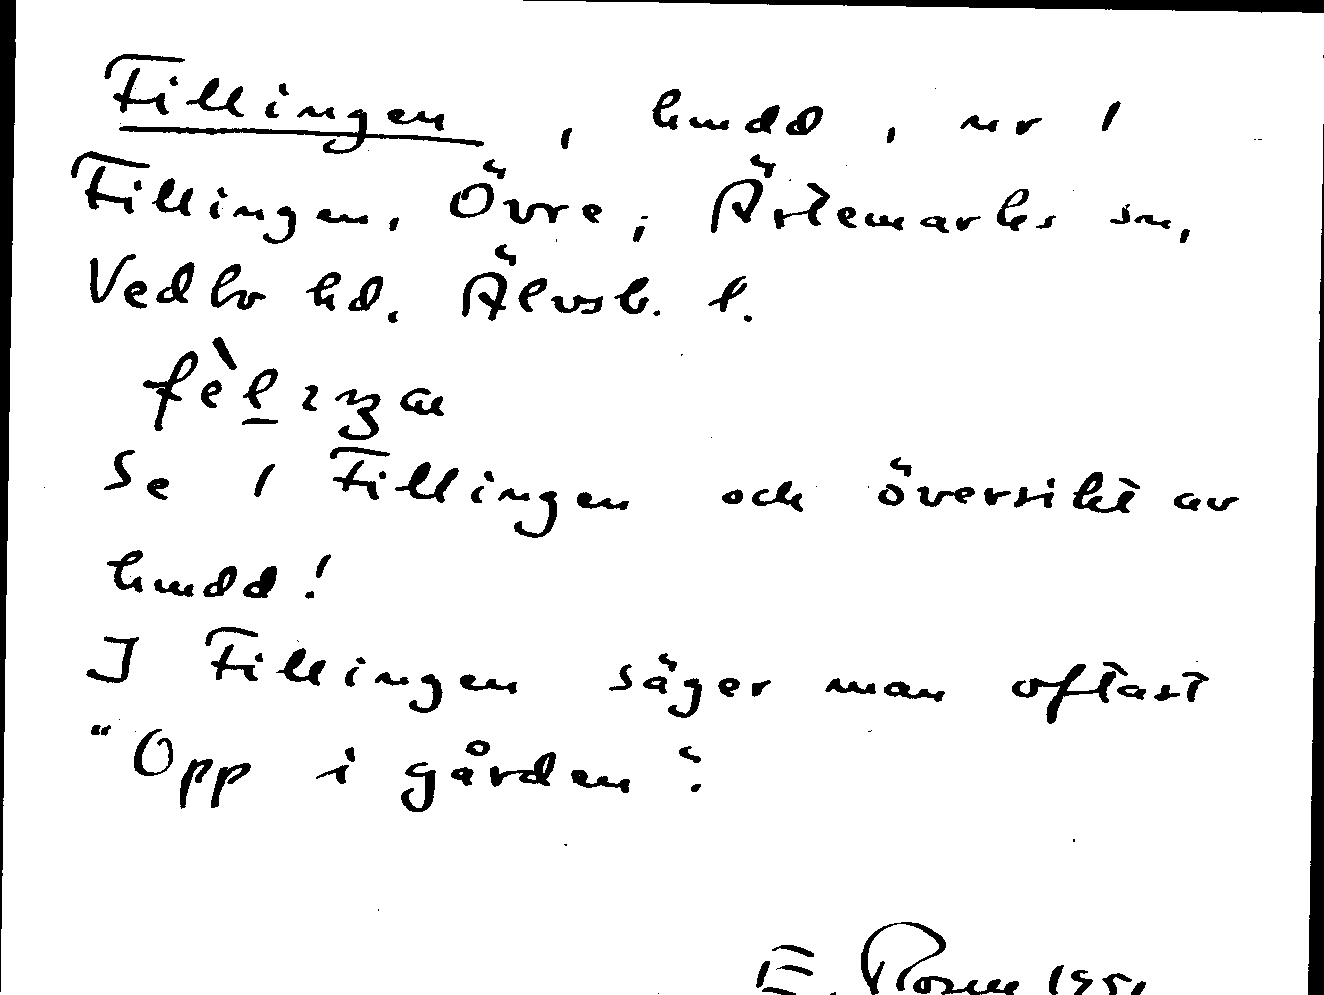 Fillingen, hmdd, nr 1
Fillingen, Övre, Ärtemarks sn,
Vedbo hd. Älvsb. l.
Se 1 Fillingen och översikt av
hmdd!
I Fillingen säger man oftast
"Opp i gården".
E. Rosen 1951